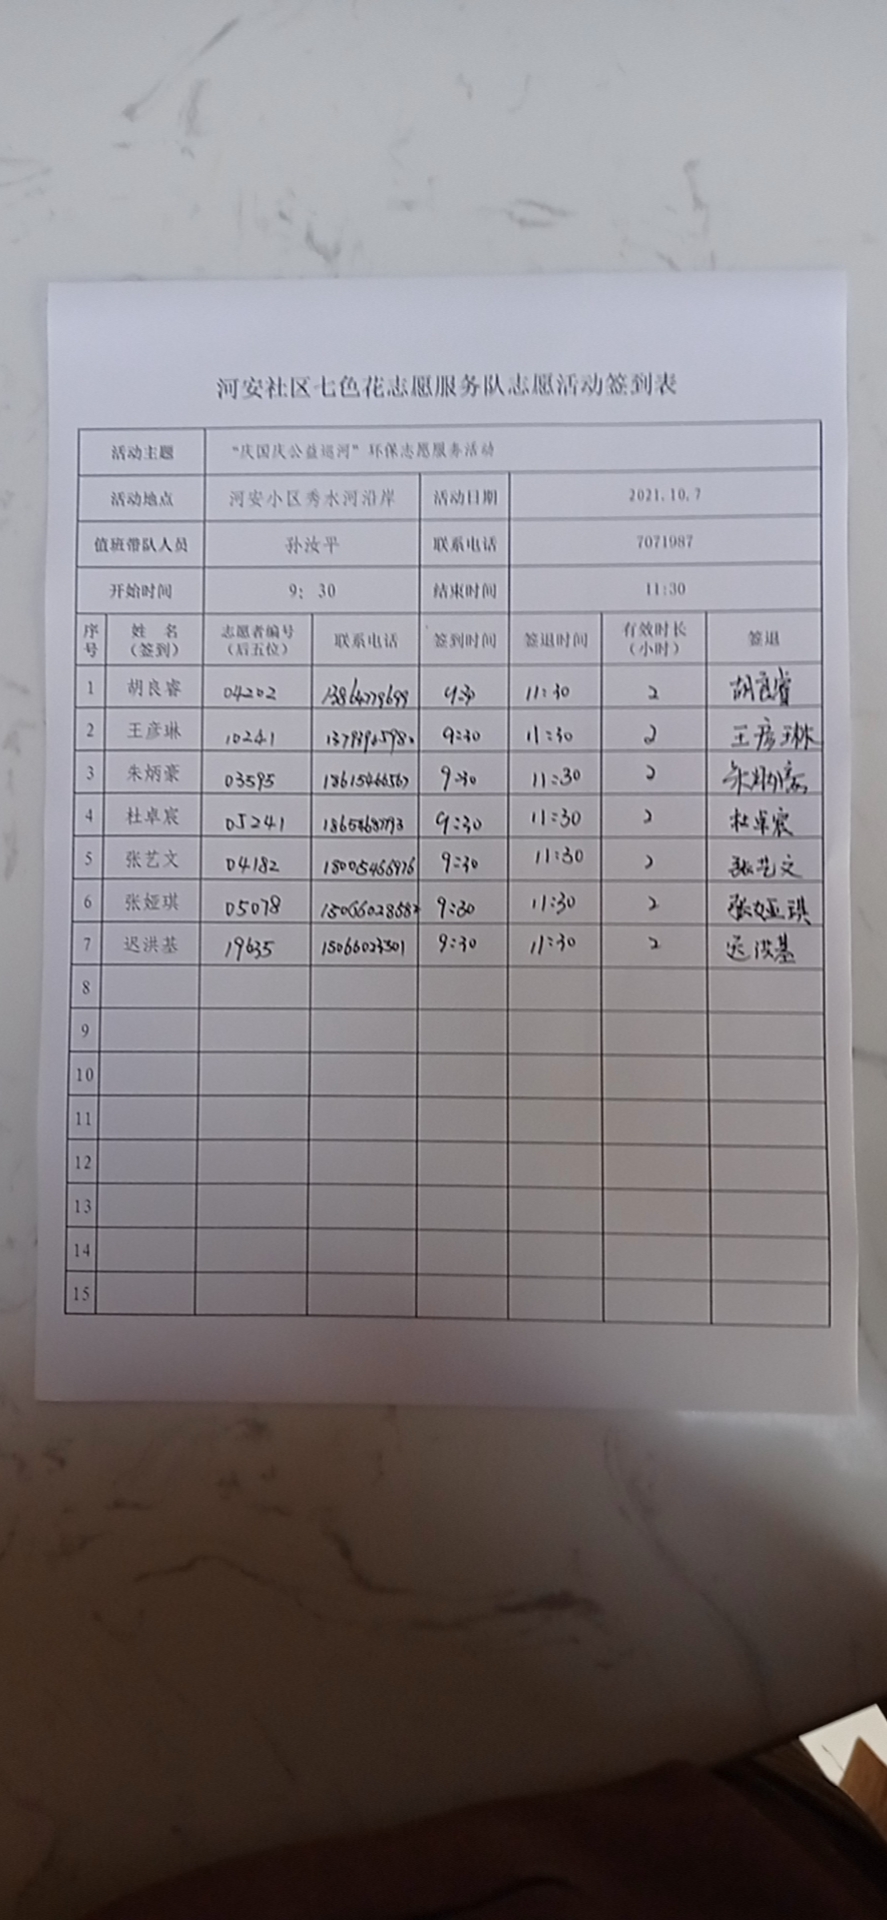 河安社区七色花志愿服务队志愿活动签到表
活动主题 “庆国庆公益巡河”环保志愿服务活动
活动地点 河安小区秀水河沿岸 活动日期 2021.10.7
值班带队人员 孙汝平 联系电话 7071987
开始时间 9: 30 结束时间 11:30
序号 姓 名（签到） 志愿者编号（后五位） 联系电话 签到时间 签退时间 有效时长（小时） 签退
1 胡良睿 04202 9:30 11:30 2 胡良睿
2 王彦琳 10241 9:30 11:30 2 王彦琳
3 朱炳豪 03595 9:30 11:30 2 朱炳豪
4 杜卓宸 05241 9:30 11:30 2 杜卓宸
5 张艺文 04182 18005466976 9:30 11:30 2 张艺文
6 张娅琪 05078 9:30 11:30 2 张娅琪
7 迟洪基 19635 15066023501 9:30 11:30 2 迟洪基
8
9
10
11
12
13
14
15